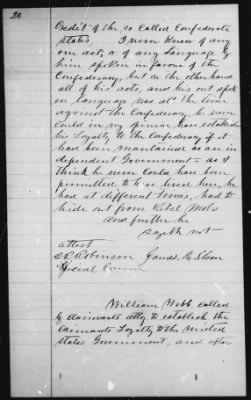 20
Credit of the so called Confederate
States I never knew of any
one act, or of any language by
him spoken in favour of the
Confederacy, but on the other hand
all of his acts, and his out spok
en language was at the time
against the Confederacy, he never
could in my opinion have established
his Loyalty to the Confederacy if it
had been maintained as an in
dependent Government - as I
think he never could have been
permitted to live here, he
had at different times, had to
hide out from Rebel Mobs
And further he
sayeth not
attest
Robinson James M Sloan
Special Comr
William Webb called
by claimants atty to establish the
claimants Loyalty to the United
States Government, and after